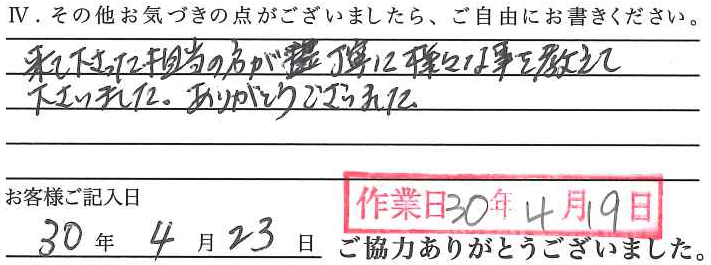 Ⅳ．その他お気づきの点がございましたら、ご自由にお書きください。
来て下さった担当の方が丁寧に様々な事を教えて
下さいました。ありがとうございました。
お客様ご記入日
作業日30年4月19日
30年4月23日
ご協力ありがとうございました。